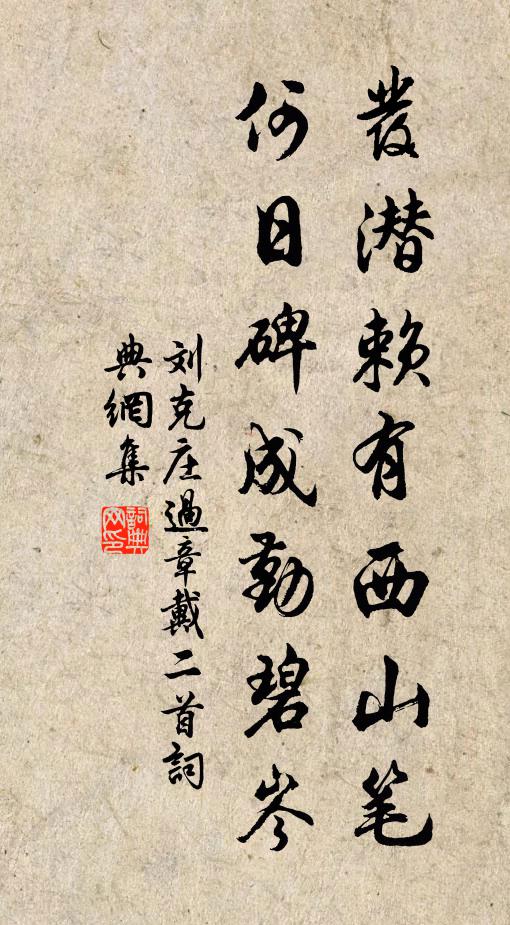 發潜赖有西山笔
何日碑成勤碧岑
刘克庄過章戴二首詞
典網集
詞典网印